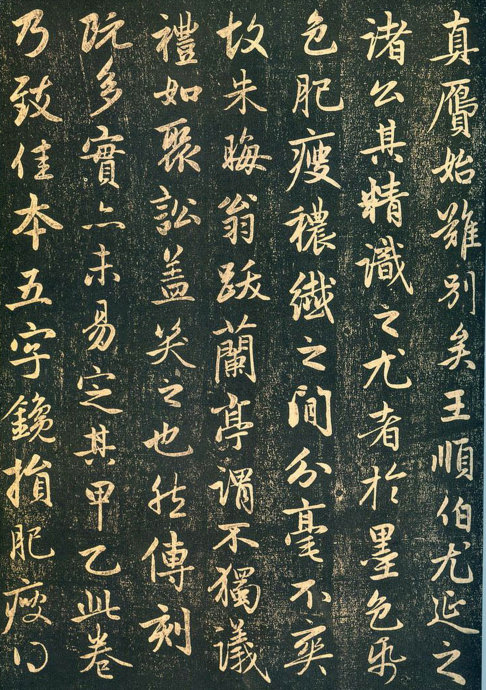 真贗始難別矣王順伯尤延之
諸公其精識之尤者於墨色紙
色肥瘦穠纖之間分毫不爽
故朱晦翁跋蘭亭謂不獨議
禮如聚訟蓋笑之也然傳刻
既多實亦未易定其甲乙此卷
乃致佳本五字鑱損肥瘦得